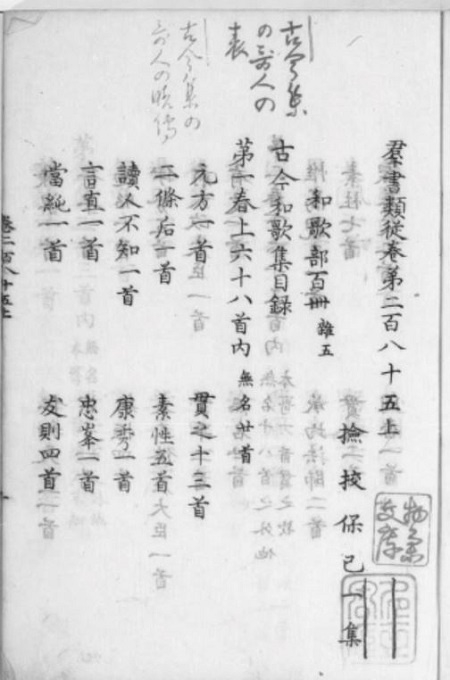 羣書類従巻第二百八十五上
撿挍保己一集
和歌部百卌 雜五
古今和歌集目録
第一春上六十八首内 無名廿首
元方一首
貫之十三首
二條后一首
素性五首
讀人不知一首
康秀一首
言直一首
忠岑一首
當純一首
友則四首
古今集
の哥人の
表
古今集の